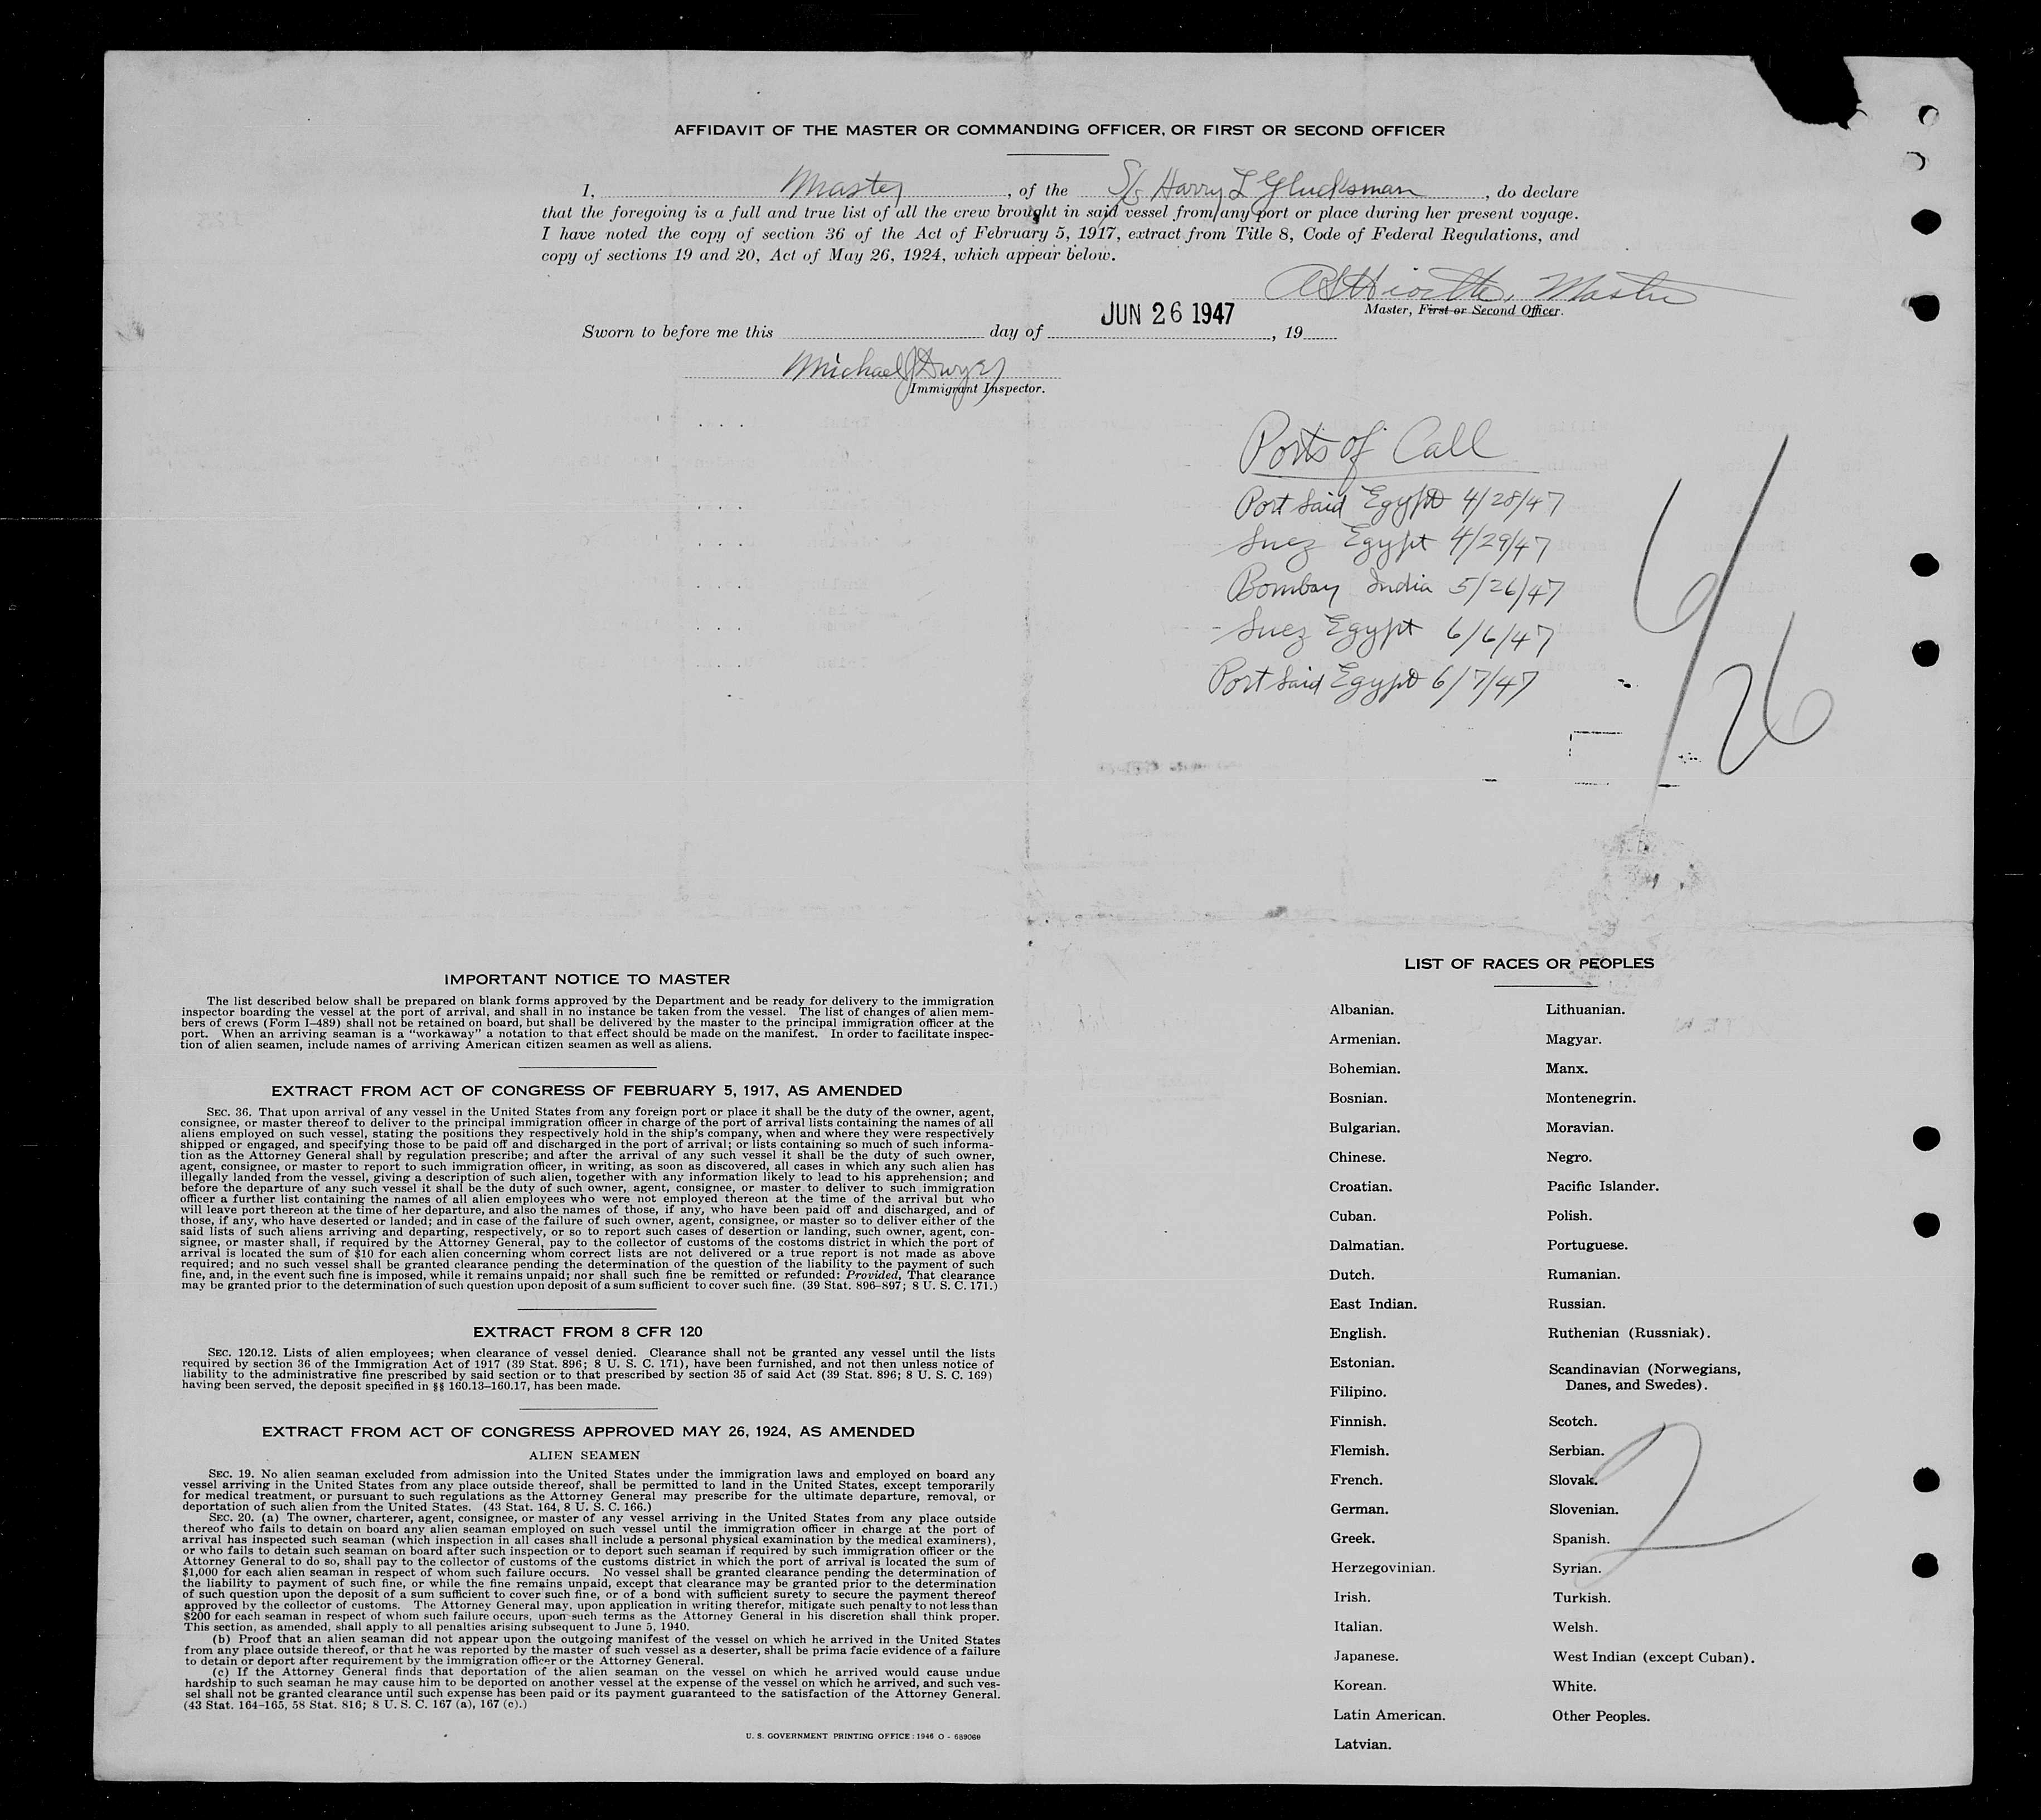 AFFIDAVIT OF THE MASTER OR COMMANDING OFFICER, OR FIRST OR SECOND OFFICER
I, Master, of the S/S Harry L Glucksman, do declare
that the foregoing is a full and true list of all the crew brought in said vessel from any port or place during her present voyage.
I have noted the copy of section 36 of the Act of February 5, 1917, extract from Title 8, Code of Federal Regulations, and
copy of sections 19 and 20, Act of May 26, 1924, which appear below.
Master
Master, First or Second Officer.
JUN 26 1947
Sworn to before me this day of , 19
Michael J Dwyer
Immigrant Inspector.
Ports of Call
Port Said Egypt 4/28/47
Suez Egypt 4/29/47
Bombay India 5/26/47
- Suez Egypt 6/6/47
Port Said Egypt 6/7/47
6/26
IMPORTANT NOTICE TO MASTER
The list described below shall be prepared on blank forms approved by the Department and be ready for delivery to the immigration
inspector boarding the vessel at the port of arrival, and shall in no instance be taken from the vessel. The list of changes of alien mem-
bers of crews (Form I–489) shall not be retained on board, but shall be delivered by the master to the principal immigration officer at the
port. When an arriving seaman is a “workaway” a notation to that effect should be made on the manifest. In order to facilitate inspec-
tion of alien seamen, include names of arriving American citizen seamen as well as aliens.
EXTRACT FROM ACT OF CONGRESS OF FEBRUARY 5, 1917, AS AMENDED
SEC. 36. That upon arrival of any vessel in the United States from any foreign port or place it shall be the duty of the owner, agent,
consignee, or master thereof to deliver to the principal immigration officer in charge of the port of arrival lists containing the names of all
aliens employed on such vessel, stating the positions they respectively hold in the ship's company, when and where they were respectively
shipped or engaged, and specifying those to be paid off and discharged in the port of arrival; or lists containing so much of such informa-
tion as the Attorney General shall by regulation prescribe; and after the arrival of any such vessel it shall be the duty of such owner,
agent, consignee, or master to report to such immigration officer, in writing, as soon as discovered, all cases in which any such alien has
illegally landed from the vessel, giving a description of such alien, together with any information likely to lead to his apprehension; and
before the departure of any such vessel it shall be the duty of such owner, agent, consignee, or master to deliver to such immigration
officer a further list containing the names of all alien employees who were not employed thereon at the time of the arrival but who
will leave port thereon at the time of her departure, and also the names of those, if any, who have been paid off and discharged, and of
those, if any, who have deserted or landed; and in case of the failure of such owner, agent, consignee, or master so to deliver either of the
said lists of such aliens arriving and departing, respectively, or so to report such cases of desertion or landing, such owner, agent, con-
signee, or master shall, if required by the Attorney General, pay to the collector of customs of the costoms district in which the port of
arrival is located the sum of $10 for each alien concerning whom correct lists are not delivered or a true report is not made as above
required; and no such vessel shall be granted clearance pending the determination of the question of the liability to the payment of such
fine, and, in the event such fine is imposed, while it remains unpaid; nor shall such fine be remitted or refunded: Provided, That clearance
may be granted prior to the determination of such question upon deposit of a sum sufficient to cover such fine. (39 Stat. 896–897; 8 U. S. C. 171.)
EXTRACT FROM 8 CFR 120
SEC. 120.12. Lists of alien employees; when clearance of vessel denied. Clearance shall not be granted any vessel until the lists
required by section 36 of the Immigration Act of 1917 (39 Stat. 896; 8 U. S. C. 171), have been furnished, and not then unless notice of
liability to the administrative fine prescribed by said section or to that prescribed by section 35 of said Act (39 Stat. 896; 8 U. S. C. 169)
having been served, the deposit specified in §§ 160.13–160.17, has been made.
EXTRACT FROM ACT OF CONGRESS APPROVED MAY 26, 1924, AS AMENDED
ALIEN SEAMEN
SEC. 19. No alien seaman excluded from admission into the United States under the immigration laws and employed on board any
vessel arriving in the United States from any place outside thereof, shall be permitted to land in the United States, except temporarily
for medical treatment, or pursuant to such regulations as the Attorney General may prescribe for the ultimate departure, removal, or
deportation of such alien from the United States. (43 Stat. 164, 8 U. S. C. 166.)
SEC. 20. (a) The owner, charterer, agent, consignee, or master of any vessel arriving in the United States from any place outside
thereof who fails to detain on board any alien seaman employed on such vessel until the immigration officer in charge at the port of
arrival has inspected such seaman (which inspection in all cases shall include a personal physical examination by the medical examiners),
or who fails to detain such seaman on board after such inspection or to deport such seaman if required by such immigration officer or the
Attorney General to do so, shall pay to the collector of customs of the customs district in which the port of arrival is located the sum of
$1,000 for each alien seaman in respect of whom such failure occurs. No vessel shall be granted clearance pending the determination of
the liability to payment of such fine, or while the fine remains unpaid, except that clearance may be granted prior to the determination
of such question upon the deposit of a sum sufficient to cover such fine, or of a bond with sufficient surety to secure the payment thereof
approved by the collector of customs. The Attorney General may, upon application in writing therefor, mitigate such penalty to not less than
$200 for each seaman in respect of whom such failure occurs, upon such terms as the Attorney General in his discretion shall think proper.
This section, as amended, shall apply to all penalties arising subsequent to June 5, 1940.
(b) Proof that an alien seaman did not appear upon the outgoing manifest of the vessel on which he arrived in the United States
from any place outside thereof, or that he was reported by the master of such vessel as a deserter, shall be prima facie evidence of a failure
to detain or deport after requirement by the immigration officer or the Attorney General.
(c) If the Attorney General finds that deportation of the alien seaman on the vessel on which he arrived would cause undue
hardship to such seaman he may cause him to be deported on another vessel at the expense of the vessel on which he arrived, and such ves-
sel shall not be granted clearance until such expense has been paid or its payment guaranteed to the satisfaction of the Attorney General.
(43 Stat. 164–165, 58 Stat. 816; 8 U. S. C. 167 (a), 167 (c).)
U. S. GOVERNMENT PRINTING OFFICE : 1946 O - 689068
LIST OF RACES OR PEOPLES
Albanian.
Armenian.
Bohemian.
Bosnian.
Bulgarian.
Chinese.
Croatian.
Cuban.
Dalmatian.
Dutch.
East Indian.
English.
Estonian.
Filipino.
Finnish.
Flemish.
French.
German.
Greek.
Herzegovinian.
Irish.
Italian.
Japanese.
Korean.
Latin American.
Latvian.
Lithuanian.
Magyar.
Manx.
Montenegrin.
Moravian.
Negro.
Pacific Islander.
Polish.
Portuguese.
Rumanian.
Russian.
Ruthenian (Russniak).
Scandinavian (Norwegians,
Danes, and Swedes).
Scotch.
Serbian.
Slovak.
Slovenian.
Spanish.
Syrian.
Turkish.
Welsh.
West Indian (except Cuban).
White.
Other Peoples.
2